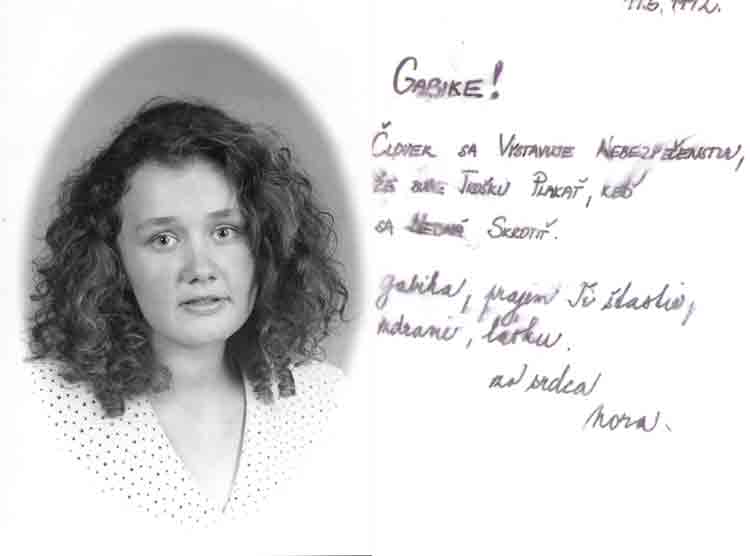 11.6.1992.
GABIKE!
ČLOVEK SA VYSTAVUJE NEBEZPEČENSTVU,
ŽE BUDE TROŠKU PLAKAŤ, KEĎ
SA NECHÁ SKROTIŤ.
gabika, prajem Ti šťastie,
zdravie, lásku.
zo srdca
Nora.